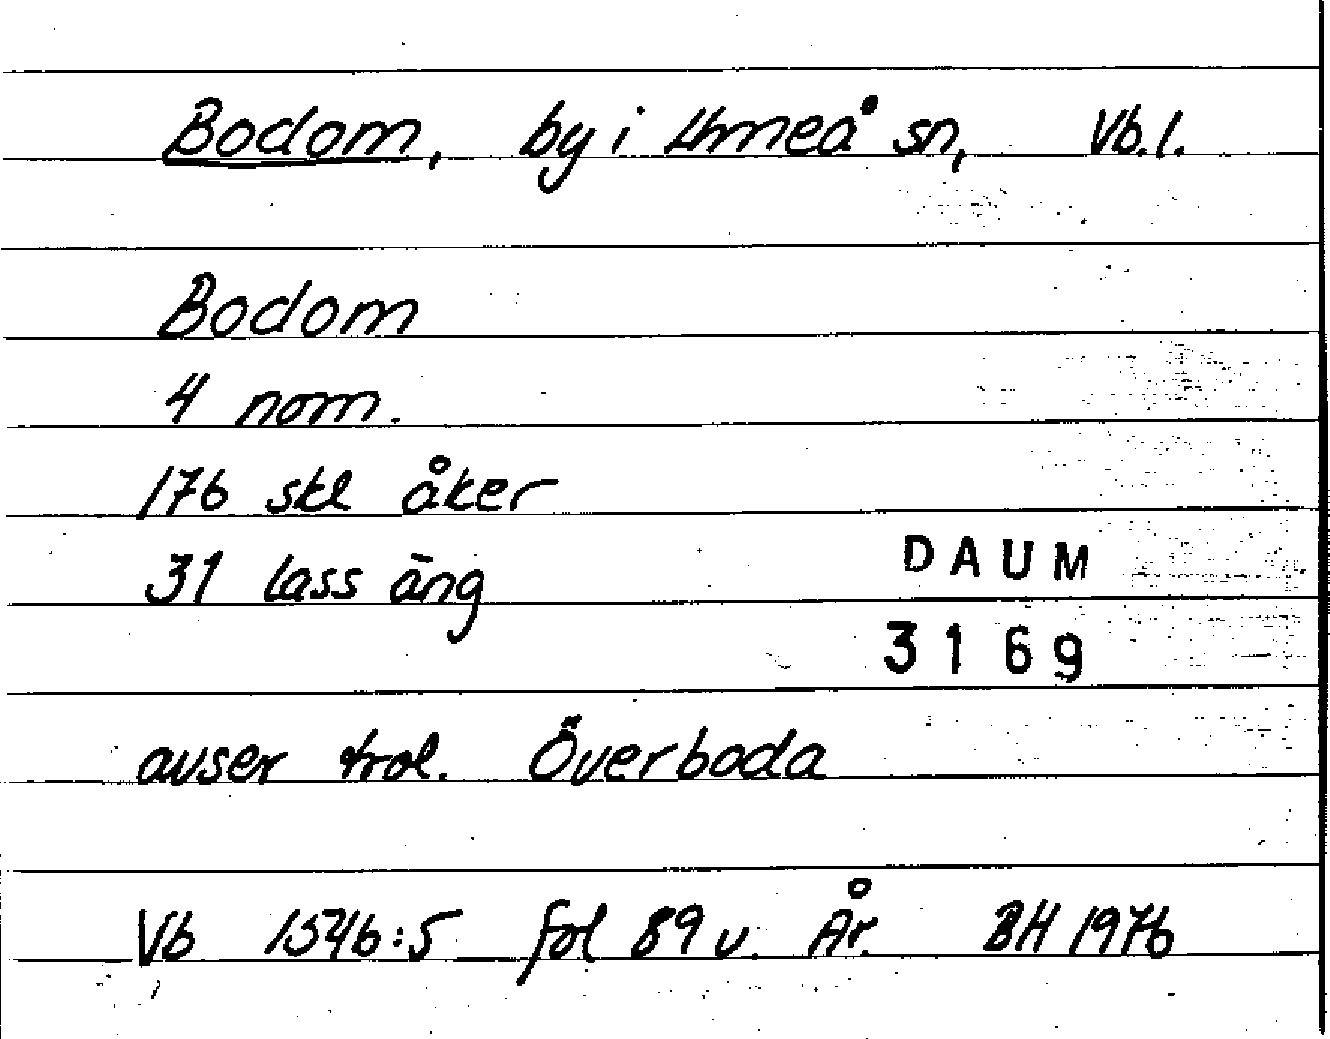 Bodom, by i Umeå sn, Vb.l.
Bodom
4 nom.
176 skl åker
31 lass äng
DAUM
3169
avser trol. Överboda
Vb 1546:5 fol 89 v. År. BH 1976